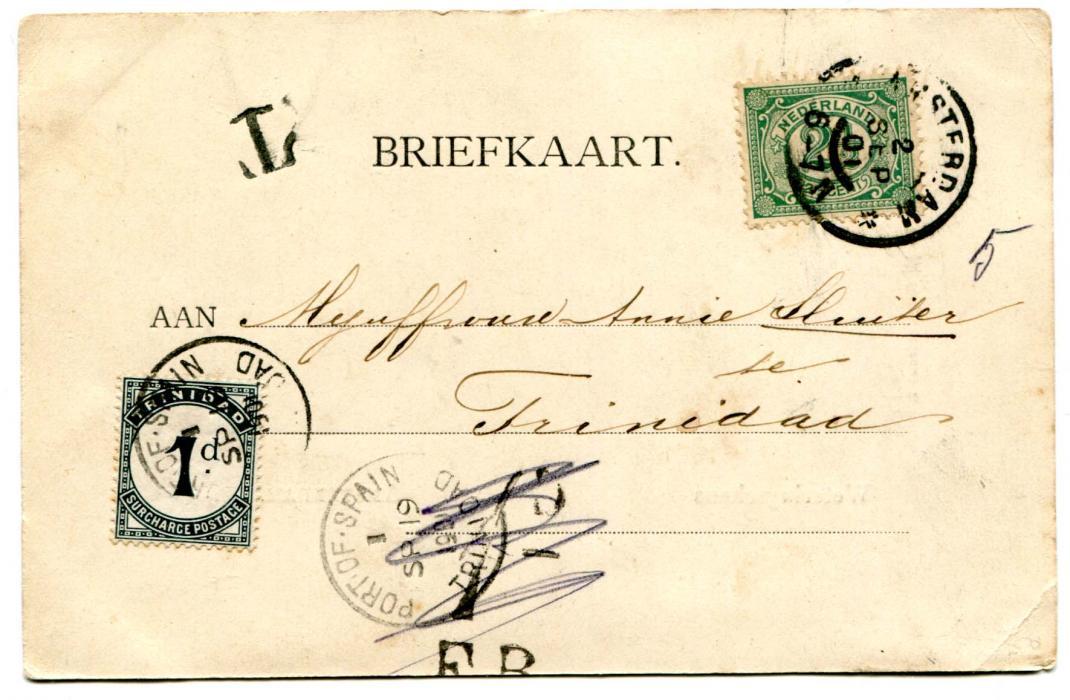 T
BRIEFKAART.
NEDERLAND
2½
CENT
AMSTERDAM
2 SEP 01
6-7N
5
AAN Mejuffrouw Annie Sluiter
te
Trinidad
TRINIDAD
1d.
SURCHARGE POSTAGE
PORT-OF-SPAIN
1
SP 19
TRINIDAD
F.B